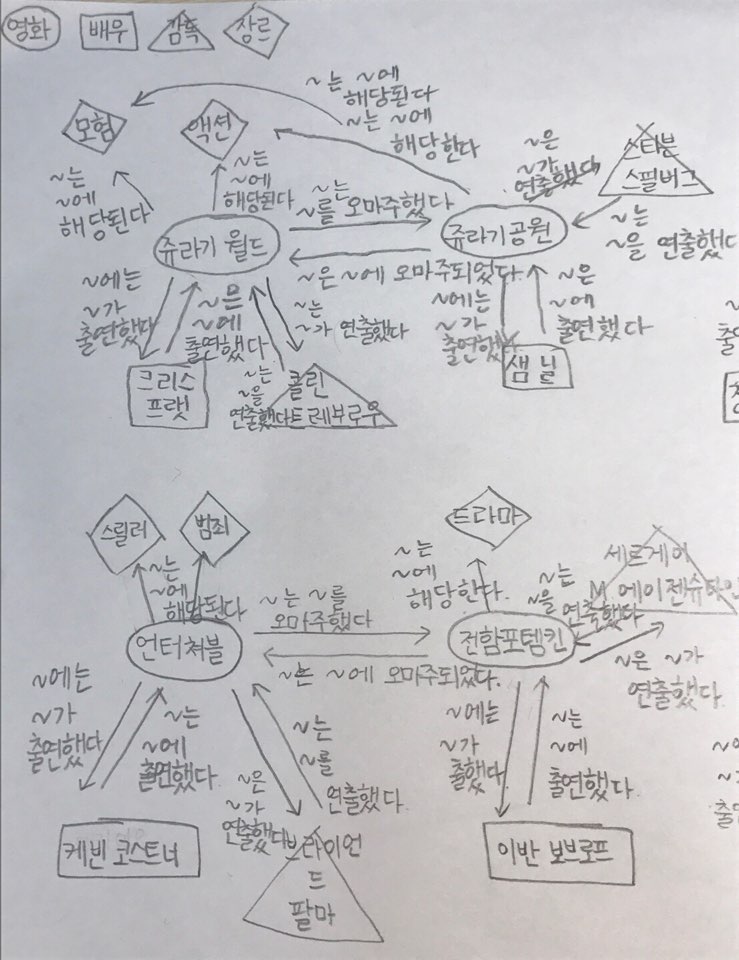 영화 배우 감독 장르
~는 ~에
해당된다
모험 액션
~는 ~에
해당한다
~은
~가
연출했다
스티븐
스필버그
~는
~에
해당된다
~는
~에
해당된다
~는
~를 오마주했다
쥬라기 월드
쥬라기공원
~는
~을 연출했다
~은 ~에 오마주되었다.
~에는
~가
출연했다
~은
~에
출연했다
~는
~가 연출했다
~에는
~가
출연했다
~은
~에
출연했다
크리스
프랫
~는
~을
연출했다
콜린
트레보로우
샘 닐
스릴러 범죄
드라마
세르게이
M. 에이젠슈타인
~는
~에
해당된다
~는 ~를
오마주했다
~는
~에
해당한다.
~는
~을
연출했다
언터쳐블
전함포템킨
~는 ~에 오마주되었다.
~은 ~가
연출했다.
~에는
~가
출연했다
~는
~에
출연했다.
~는
~를
연출했다.
~은
~가
연출했다
~에는
~가
출했다.
~는
~에
출연했다.
케빈 코스트너
브라이언
드
팔마
이반 보브로프